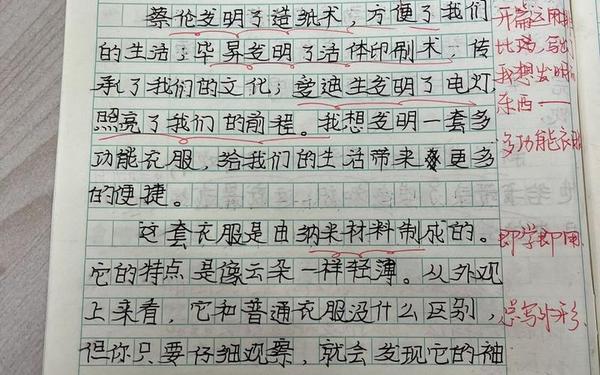 蔡伦发明了造纸术，方便了我们
的生活；毕昇发明了活体印制术，传
承了我们的文化；爱迪生发明了电灯，
照亮了我们的前程。我想发明一套多
功能衣服，给我们的生活带来更多
的便捷。
这套衣服是由纳米材料制成的。
它的特点是像云朵一样轻薄。从外观
上来看，它和普通衣服没什么区别，
但你只要仔细观察，就会发现它的袖
开篇运用排
比句，写出
我想发明的
东西——
多功能衣服
即学即用
总写外形